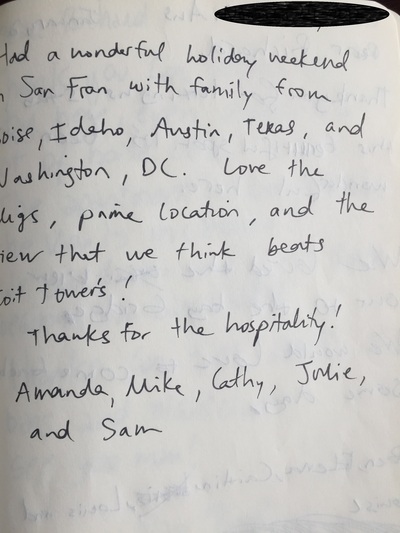 Had a wonderful holiday weekend
n San Fran with family from
oise, Idaho, Austin, Texas, and
Washington, DC. Love the
digs, prime location, and the
iew that we think beats
oit Tower's!
Thanks for the hospitality!
Amanda, Mike, Cathy, Julie,
and Sam